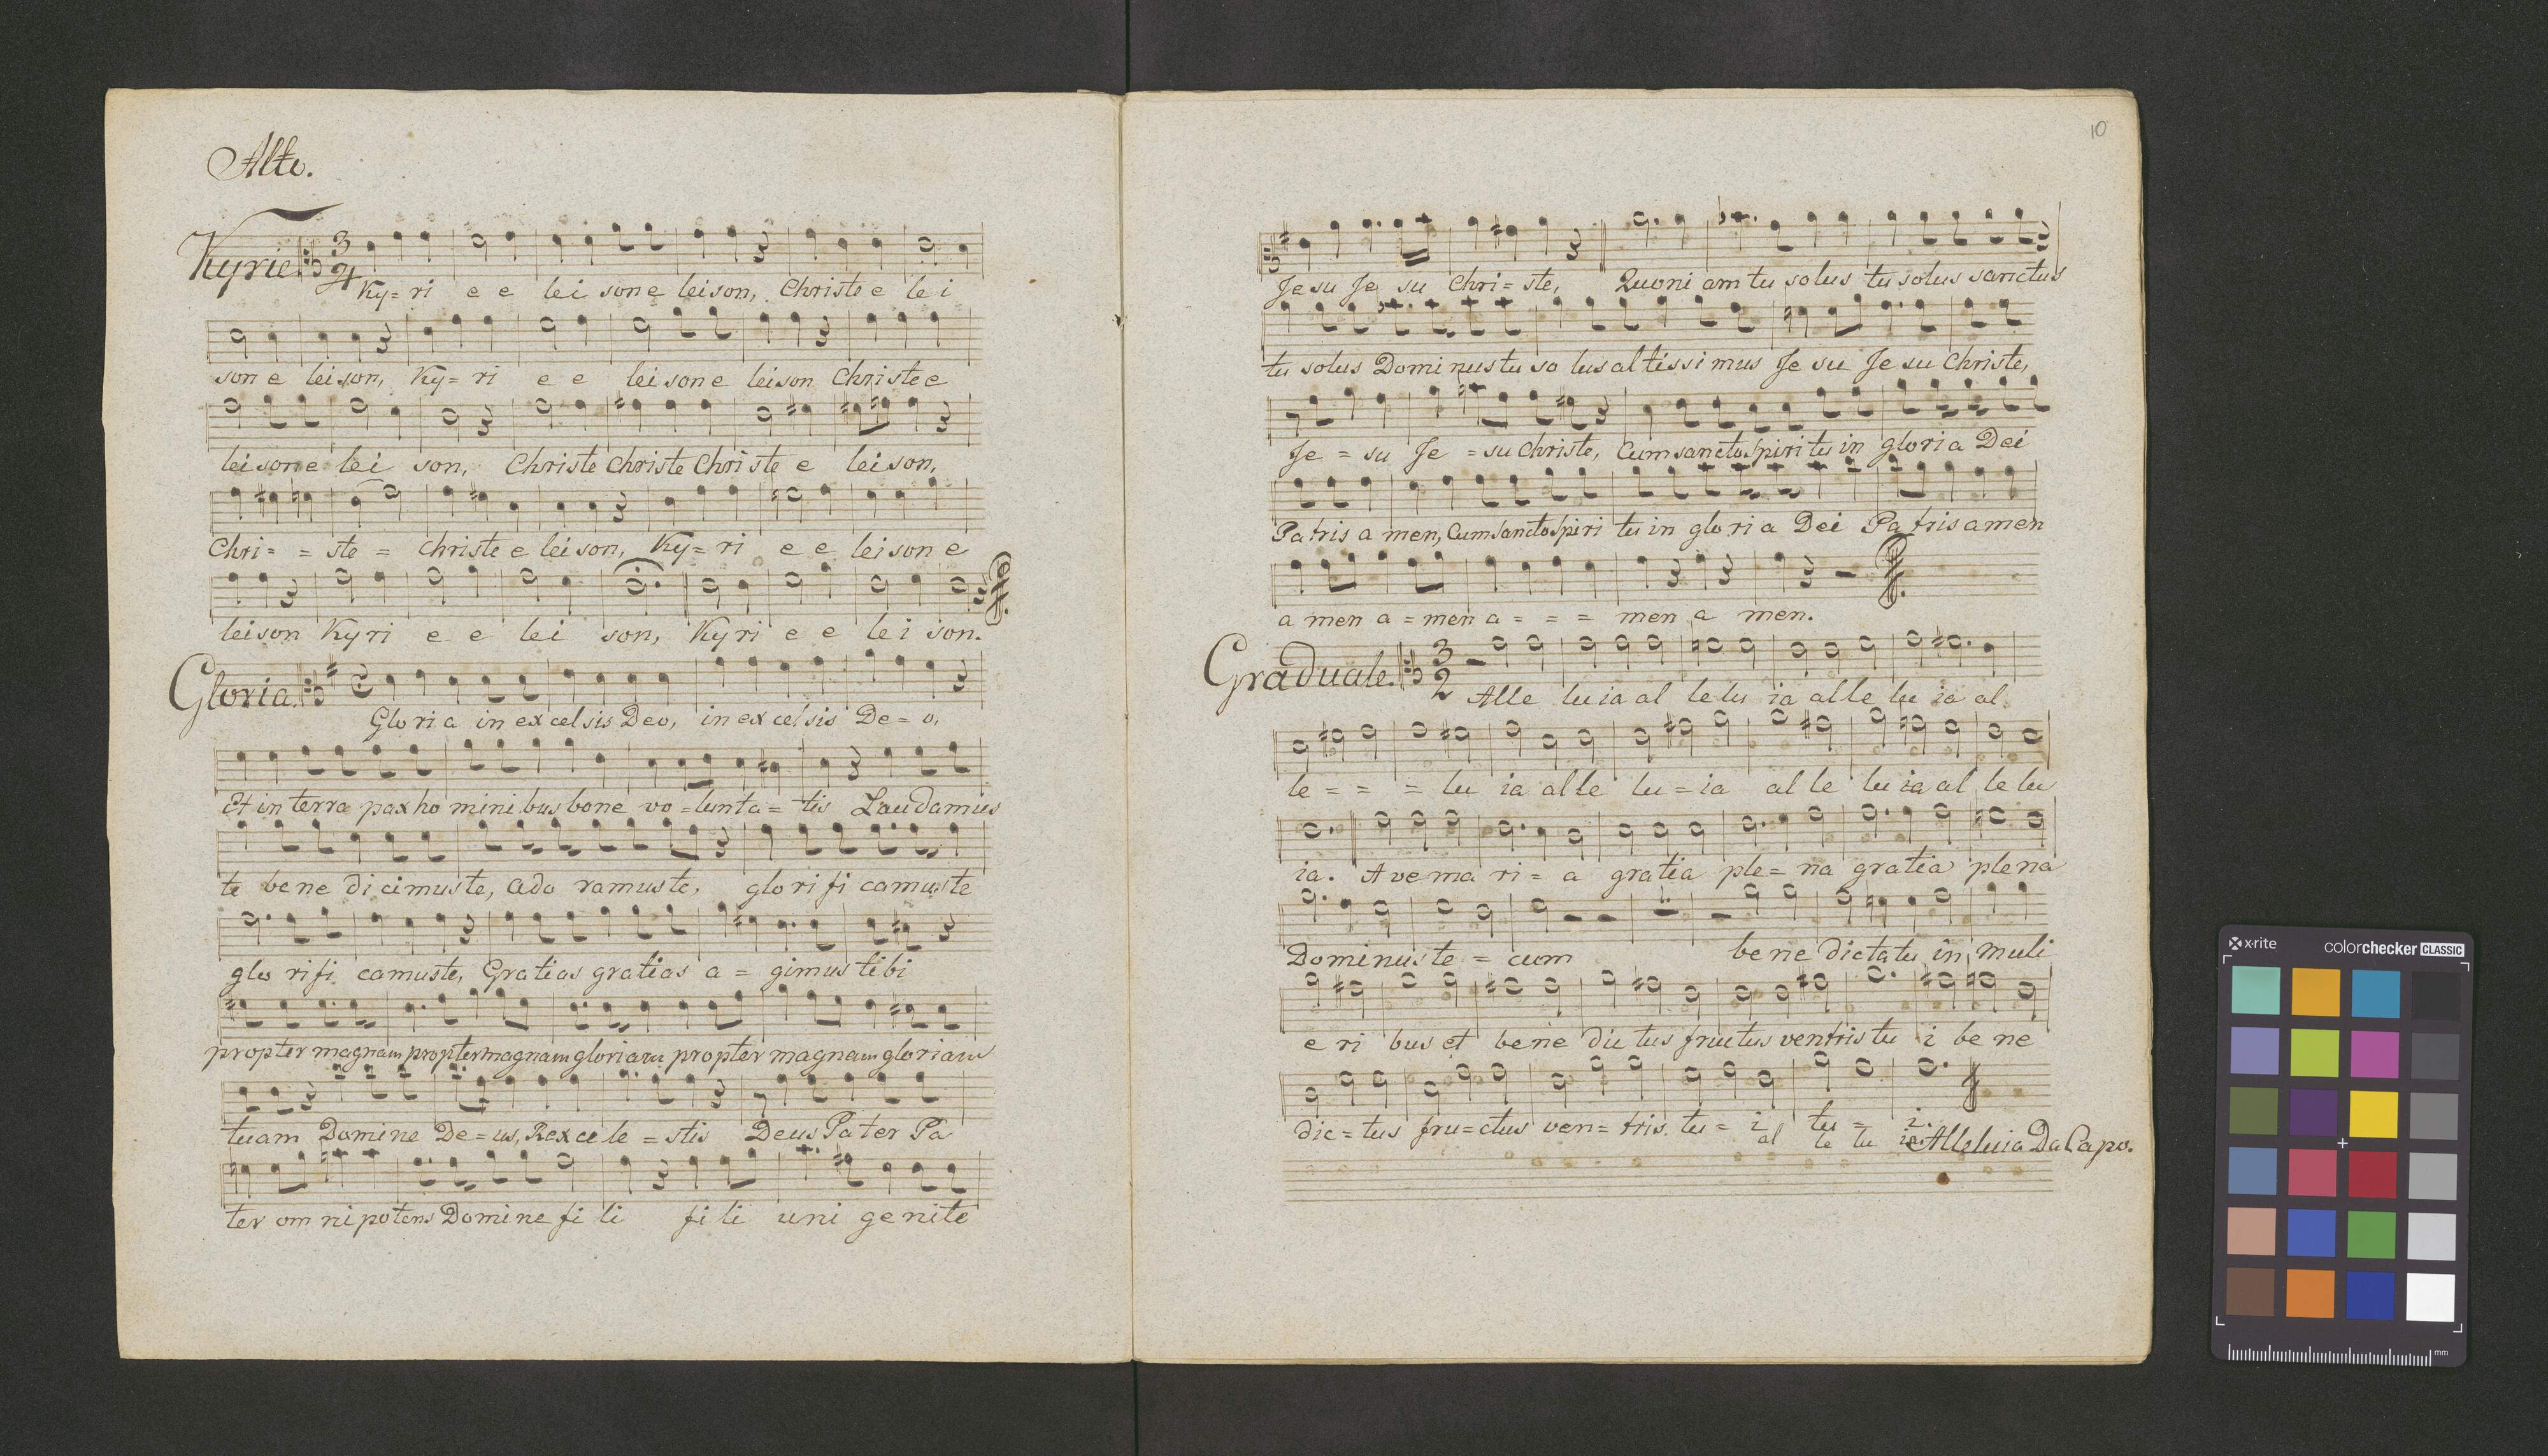 Alto.
Kyrie 3 4
Ky= ri e e lei son e leison, Christe e le i
son e leison, Ky= ri e e leison e leison Christe e
leison e lei son, Christe Christe Christe e leison,
Chri= = ste = Christe e leison, Ky= ri e e leison e
leison Ky ri e e lei son, Ky ri e e le i son.
Gloria.
Glo ri a in ex cel sis Deo, in ex cel sis De= o,
Et in terra pax ho mini bus bone vo =lunta= tis Laudamus
te be ne di cimus te, ado ramus te, glo ri fi camus te
glo ri fi camus te, Gratias gratias a = gimus tibi
propter magnam propter magnam gloriam propter magnam gloriam
tuam Domine De=us, Rex ce le =stis Deus Pater Pa
ter om ni potens Domine fi li fi li uni genite
10
Je su Je su Chri= ste, Quoni am tu solus tu solus sanctus
tu solus Domi nus tu so lus al tissi mus Je su Je su Christe,
Je = su Je =su Christe, Cum sancto Spiri tu in gloria Dei
Patris a men, Cum sancto Spiri tu in glo ri a Dei Patris amen
a men a = men a = = = men a men.
Graduale. 3 2
Alle lu ia al le lu ia al le lu ia al
le = = = lu ia al le lu = ia al le lu ia al le lu
ia. Ave ma ri = a gratia ple= na gratia plena
Dominus te = cum be ne dicta tu in muli
e ri bus et be ne dic tus fructus ventris tu i be ne
dic= tus fru=ctus ven= tris tu= i tu = i.
al le lu ia. Alleluia Da Capo.
x-rite
colorchecker CLASSIC
mm